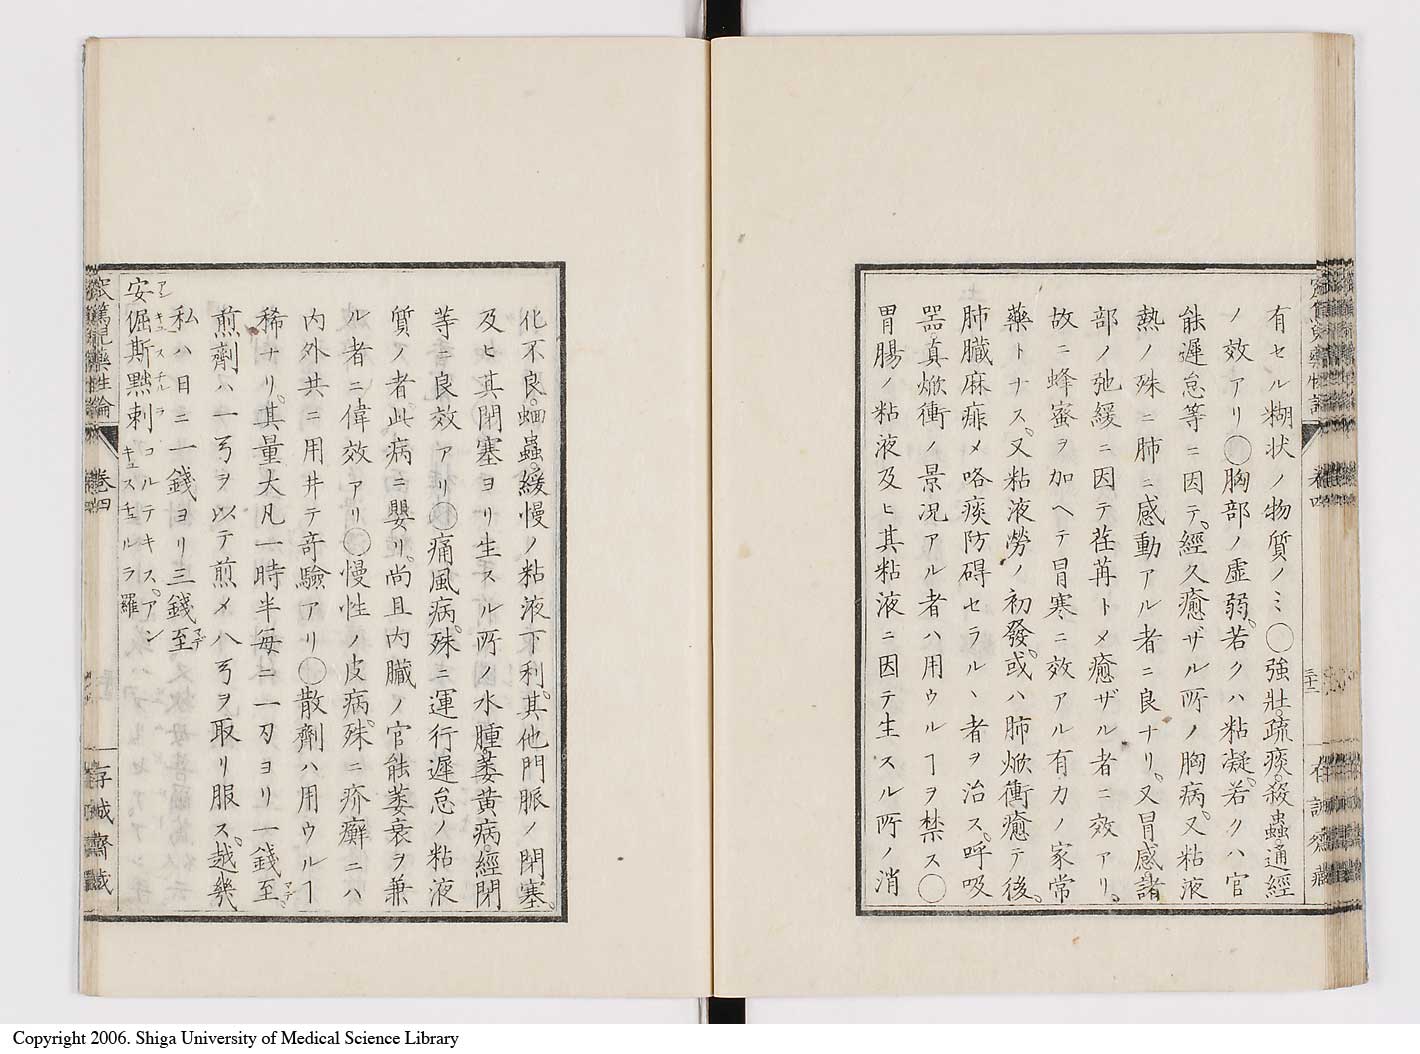 有セル糊状ノ物質ノミ〇強壮。疏痰。殺蟲通經
ノ效アリ〇胸部ノ虚弱。若クハ粘凝。若クハ官
能遅怠等ニ因テ。經久癒ザル所ノ胸病。又粘液
熱ノ殊ニ肺ニ感動アル者ニ良ナリ。又冒感諸
部ノ弛緩ニ因テ荏苒トメ癒ザル者ニ效アリ。
故ニ蜂蜜ヲ加ヘテ冒寒ニ效アル有力ノ家常
藥トナス。又粘液勞ノ初發。或ハ肺焮衝癒テ後。
肺臓麻痺メ咯痰防碍セラルヽ者ヲ治ス。呼吸
器。真焮衝ノ景况アル者ハ用ウルヿヲ禁ス〇
胃腸ノ粘液及ヒ其粘液ニ因テ生スル所ノ消
三十二
化不良。蛔蟲。緩慢ノ粘液下利。其他門脈ノ閉塞。
及ヒ其閉塞ヨリ生スル所ノ水腫。萎黄病。經閉
等ニ良效アリ〇痛風病。殊ニ運行遅怠ノ粘液
質ノ者此病ニ嬰リ。尚且内臓ノ官能萎衰ヲ兼
ル者ニ偉效アリ〇慢性ノ皮病。殊ニ疥癬ニハ
内外共ニ用井テ竒驗アリ〇散劑ハ用ウルヿ
稀ナリ。其量大凡一時半毎ニ一刄ヨリ一錢至マデ。
煎劑ハ一弓ヲ以テ煎メ八弓ヲ取リ服ス。越幾
私ハ日ニ一錢ヨリ三錢至マデ
安倔斯黙剌 コルテキス。アンギュスチュラ羅
アンギュスチュラ
窊篤兒藥性論 卷四 存誠齋藏